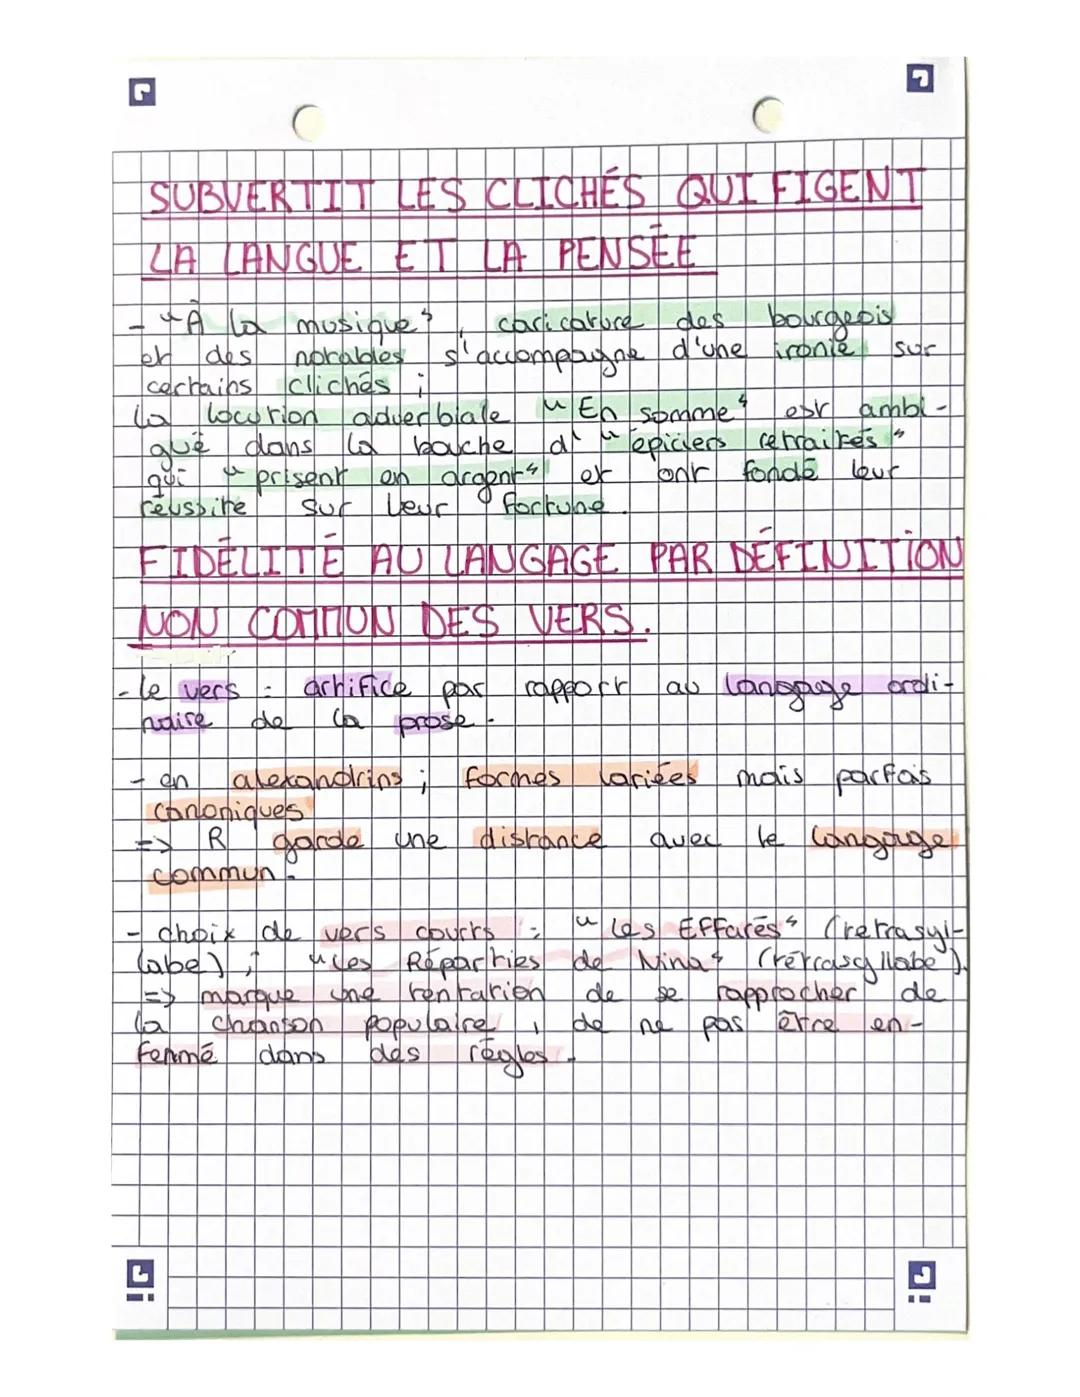 SUBVERTIT LES CLICHÉS QUI FIGENT
LA LANGUE ET LA PENSÉE
- "À la musique", caricature des bourgeois
et des notables s'accompagne d'une ironie sur
certains clichés ;
la locution adverbiale "En somme" est ambi-
guë dans la bouche d'"épiciers retraités"
qui "prisent en argent" et ont fondé leur
réussite sur leur fortune.
FIDÉLITÉ AU LANGAGE PAR DÉFINITION
NON COMMUN DES VERS.
- le vers = artifice par rapport au langage ordi-
naire de la prose.
- en alexandrins ; formes variées mais parfois
canoniques
=> R garde une distance avec le langage
commun.
- choix de vers courts : "Les Effarés" (tetrasyl-
labe) ; "Les Réparties de Nina" (tétrasyllabe).
=> marque une tentation de se rapprocher de
la chanson populaire, de ne pas être en-
fermé dans des règles.